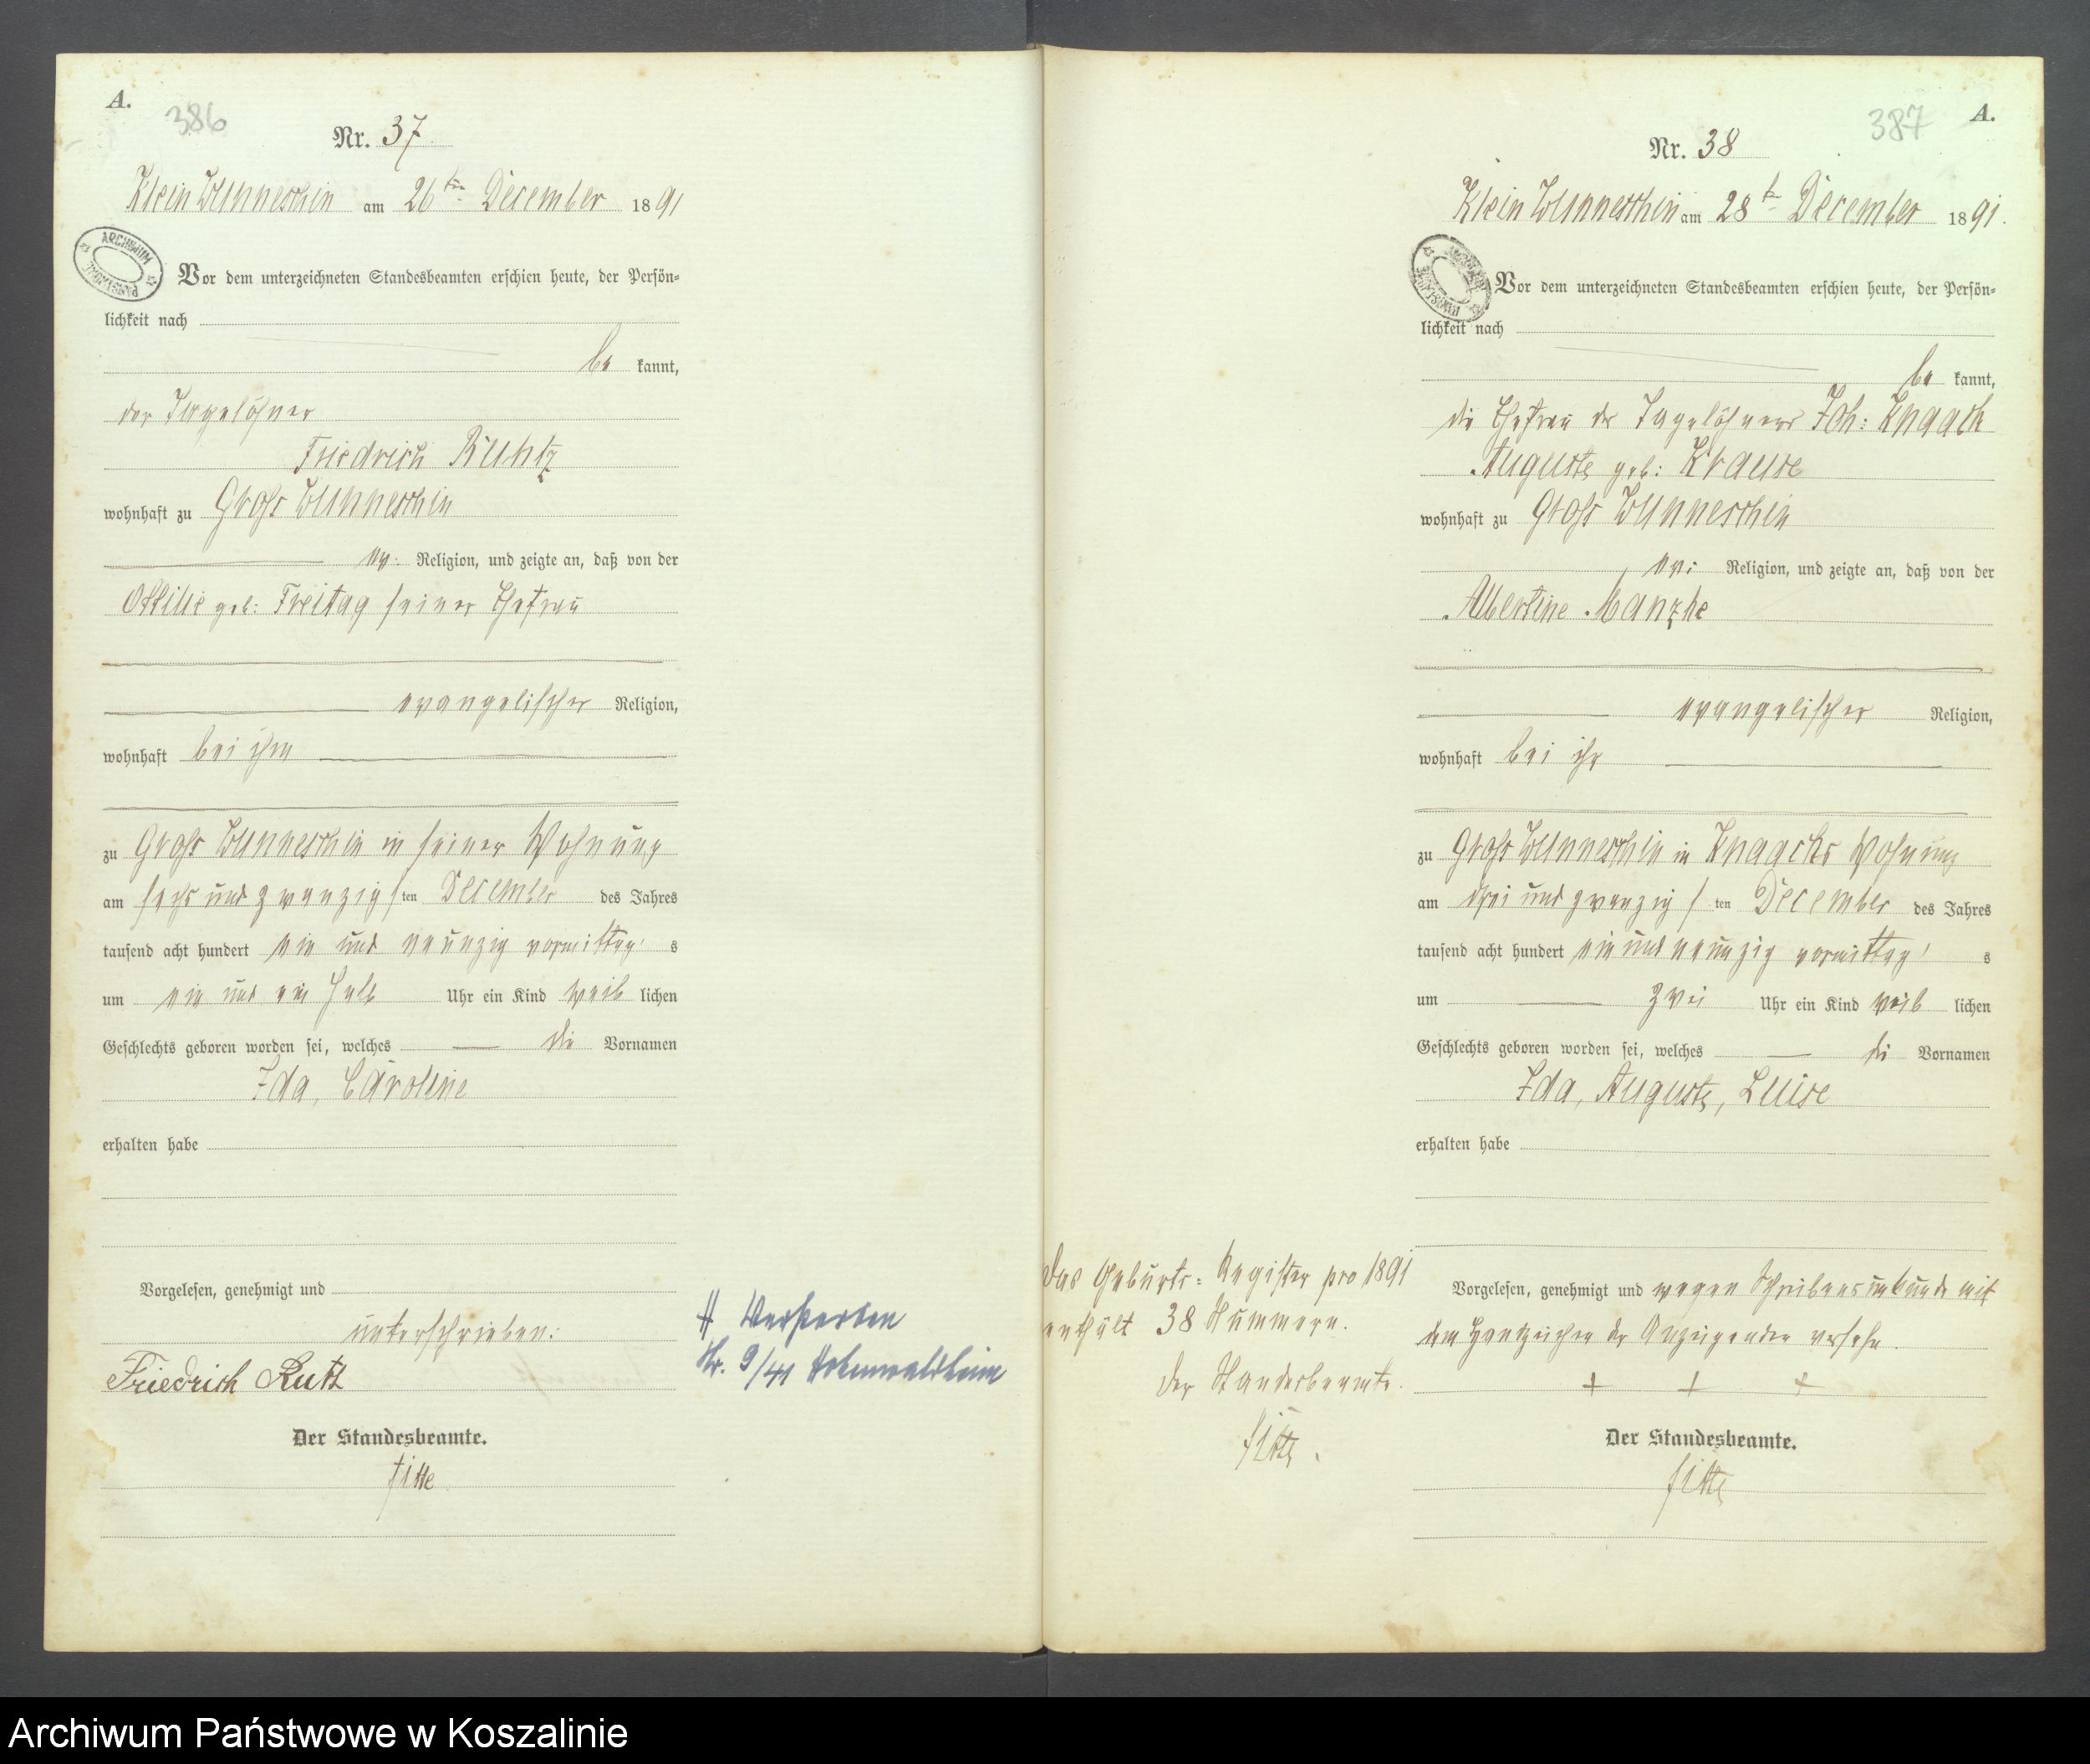 A.
386
Nr. 37
Klein Wunneschin am 26ten December 1891
ARCHIWUM PAŃSTWOWE
Vor dem unterzeichneten Standesbeamten erschien heute, der Persön-
lichkeit nach
be kannt,
der Tagelöhner
Friedrich
wohnhaft zu Groß Wunneschin
ev. Religion, und zeigte an, daß von der
Ottilie geb: Freitag seiner Ehefrau
evangelischer Religion,
wohnhaft bei ihm
zu Groß Wunneschin in seiner Wohnung
am sechs und zwanzigsten December des Jahres
tausend acht hundert ein und neunzig vormittags
um ein und ein halb Uhr ein Kind weib lichen
Geschlechts geboren worden sei, welches die Vornamen
Ida, Caroline
erhalten habe
Vorgelesen, genehmigt und
unterschrieben:
Friedrich
Der Standesbeamte.
Verstorben
Nr. 9/41
387
A.
Nr. 38
Klein Wunneschin am 28t December 1891.
Vor dem unterzeichneten Standesbeamten erschien heute, der Persön-
lichkeit nach
be kannt,
die Ehefrau des Tagelöhners Joh: Knaack
Auguste geb: Krause
wohnhaft zu Groß Wunneschin
ev: Religion, und zeigte an, daß von der
Albertine Manzke
evangelischer Religion,
wohnhaft bei ihr
zu Groß Wunneschin in Knaacks Wohnung
am drei und zwanzigsten December des Jahres
tausend acht hundert ein und neunzig vormittags
um zwei Uhr ein Kind weib lichen
Geschlechts geboren worden sei, welches die Vornamen
Ida, Auguste, Luise
erhalten habe
Vorgelesen, genehmigt und wegen Schreibensunkunde mit
dem Handzeichen der Anzeigenden versehn.
+ + +
Der Standesbeamte.
Das Geburts-Register pro 1891
enthält 38 Nummern.
Der Standesbeamte.
Archiwum Państwowe w Koszalinie